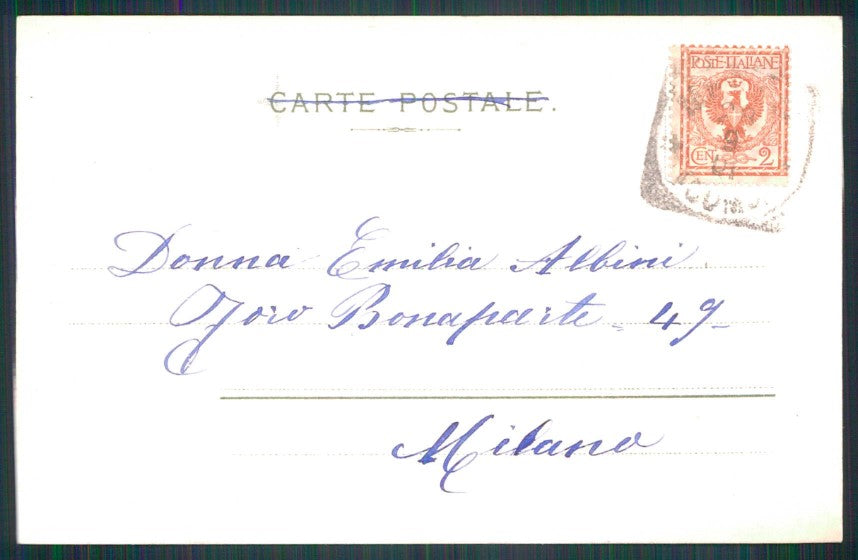 CARTE POSTALE.
POSTE·ITALIANE
CEN. 2
9
01
Donna Emilia Albini
Foro Bonaparte - 49-
Milano